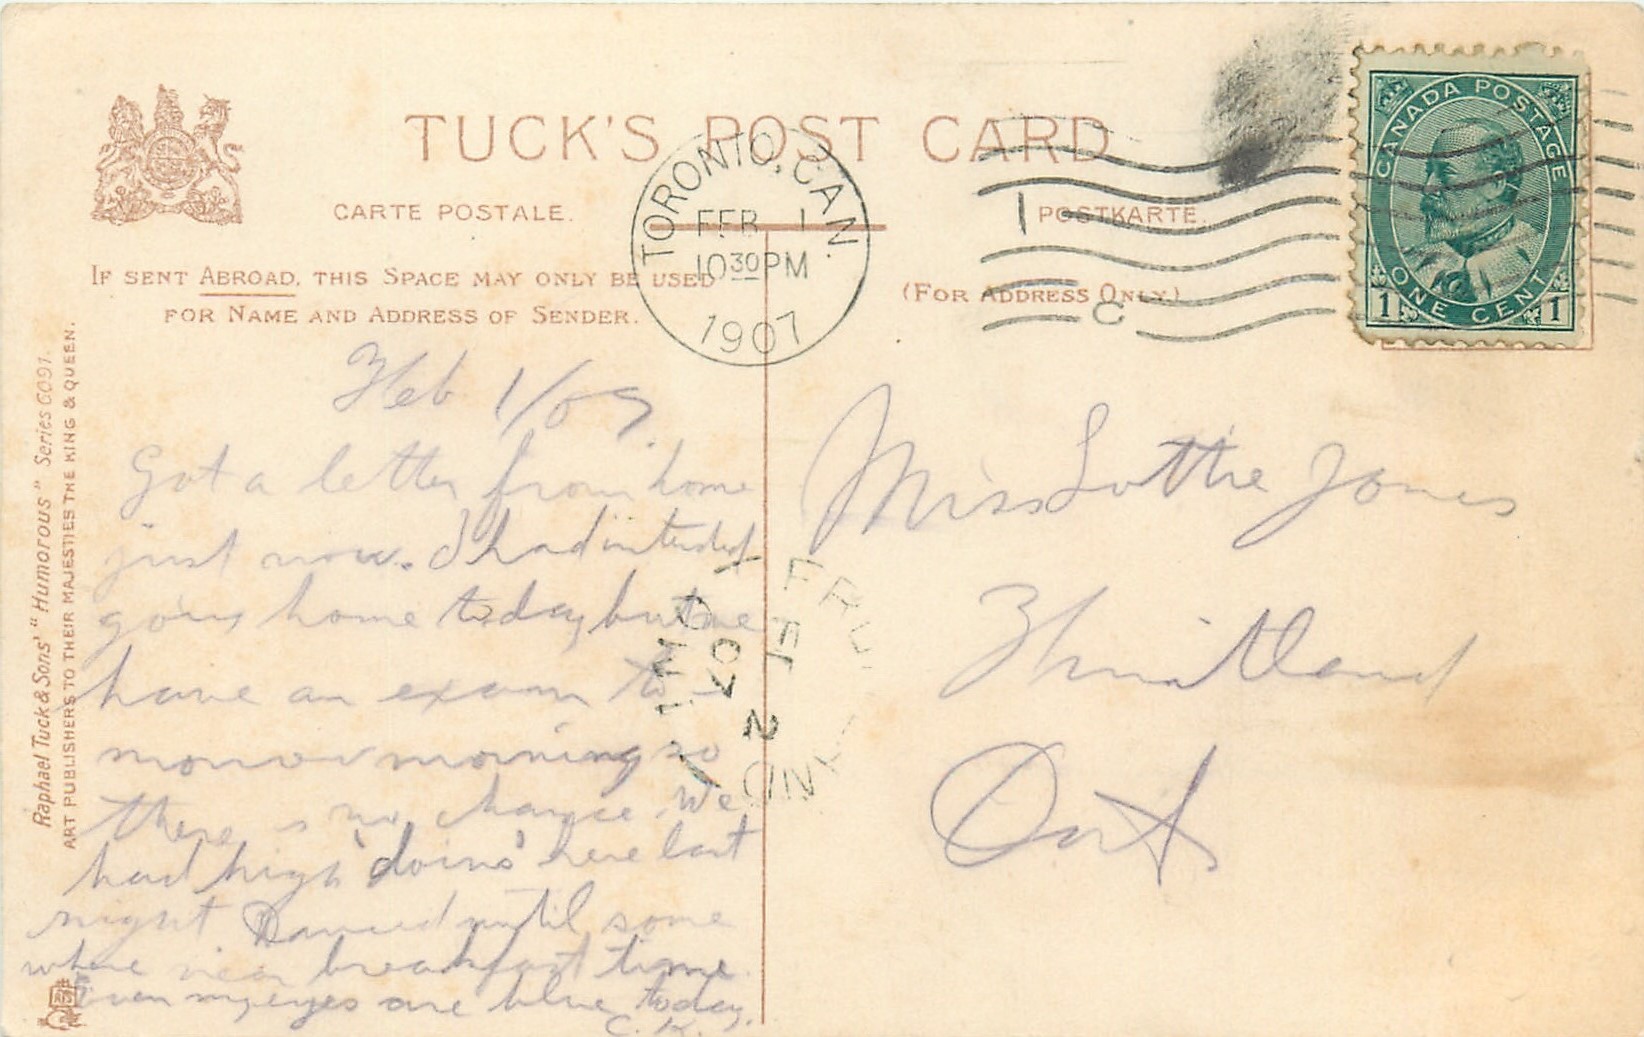 TUCK'S POST CARD
CARTE POSTALE.
POSTKARTE.
IF SENT ABROAD, THIS SPACE MAY ONLY BE USED
FOR NAME AND ADDRESS OF SENDER.
(FOR ADDRESS ONLY.)
TORONTO, CAN.
FEB 1
10 30 PM
1907
1
C
CANADA POSTAGE
ONE CENT
1 1
Raphael Tuck & Sons' "Humorous" Series 6091.
ART PUBLISHERS TO THEIR MAJESTIES THE KING & QUEEN.
Feb 1/07.
Got a letter from home
just now. I had intended
going home today but we
have an exam to-
morrow morning so
there is no chance. We
had high 'doins' here last
night Danced until some
where near breakfast time
Even my eyes are blue today.
C. K.
Miss Lottie Jones
Fruitland
Ont
FRUITLAND ONT
FE 2
07